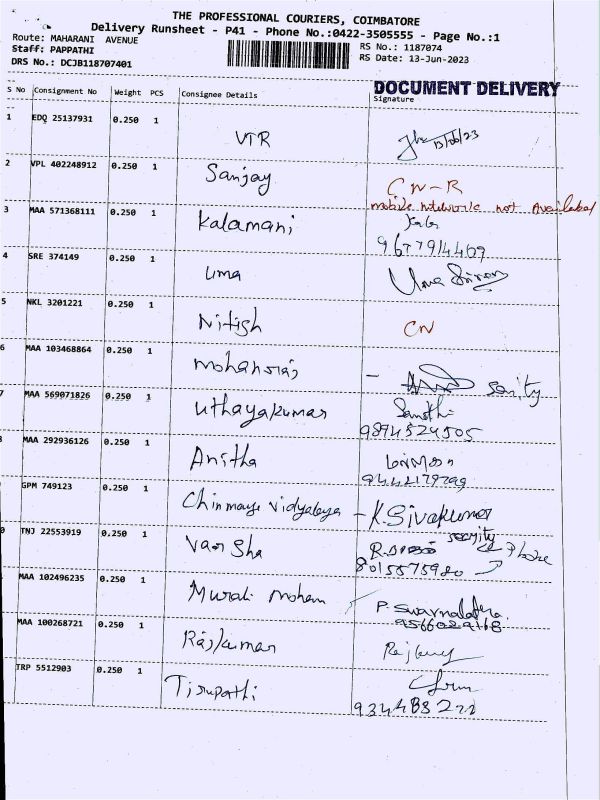 THE PROFESSIONAL COURIERS, COIMBATORE
Delivery Runsheet - P41 - Phone No.:0422-3505555 - Page No.:1
Route: MAHARANI AVENUE
RS No.: 1187074
Staff: PAPPATHI
RS Date: 13-Jun-2023
DRS No.: DCJB118707401
DOCUMENT DELIVERY
S No Consignment No Weight PCS Consignee Details Signature
1 EDQ 25137931 0.250 1
VTR 13/06/23
2 VPL 402248912 0.250 1
Sanjay CN-R
mobile network not Available
3 MAA 571368111 0.250 1
Kalamani
9677914469
4 SRE 374149 0.250 1
Uma Uma
5 NKL 3201221 0.250 1
Nitish CN
6 MAA 103468864 0.250 1
mohanraj -
7 MAA 569071826 0.250 1
Uthayakumar
9894524505
8 MAA 292936126 0.250 1
Anitha
GPM 749123 0.250 1
Chinmaya Vidyalaya - K.Sivakumar
0 TNJ 22553919 0.250 1
Varsha
8015575980
MAA 102496235 0.250 1
Murali mohan P. Swarnalatha
9566029168
MAA 100268721 0.250 1
Rajkumar
TRP 5512903 0.250 1
Tirupathi